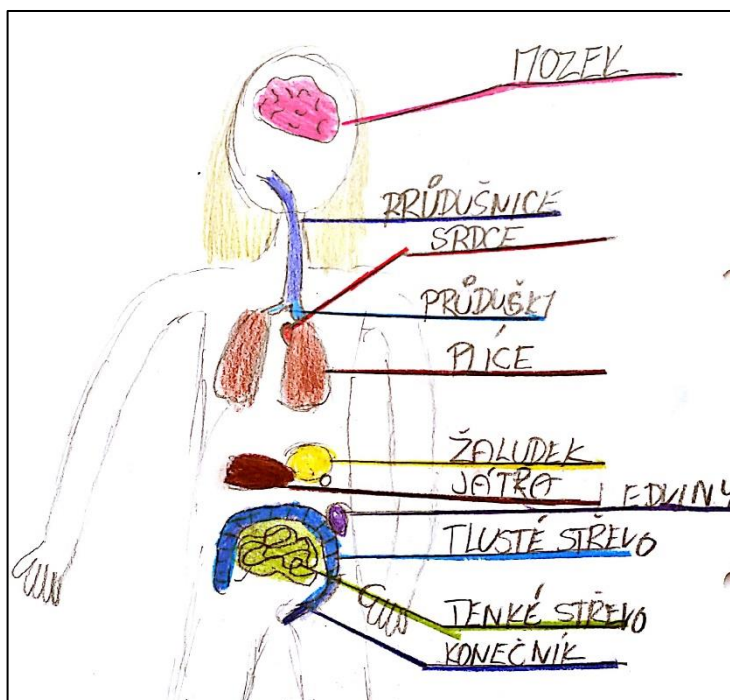 MOZEK
PRŮDUŠNICE
SRDCE
PRŮDUŠKY
PLÍCE
ŽALUDEK
JÁTRA
LEDVINY
TLUSTÉ STŘEVO
TENKÉ STŘEVO
KONEČNÍK